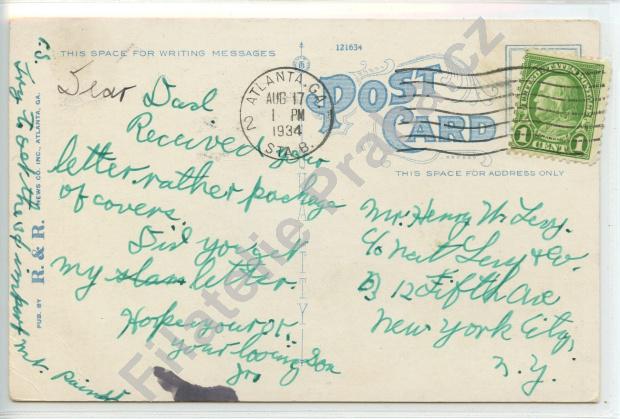 THIS SPACE FOR WRITING MESSAGES
121634
POST
CARD
THIS SPACE FOR ADDRESS ONLY
ATLANTA, GA.
AUG 17
1 PM
1934
STA. B.
2
UNITED STATES POSTAGE
1 CENT 1
Dear Dad
Received your
letter, rather package
of covers.
Did you get
my slam letter.
Hope your OK.
your loving son
Jr.
P.S.
Mr. Henry M. Levy.
c/o Nat Levy & Co.
12 Fifth Ave
New York City,
N.Y.
PUB. BY R. & R. NEWS CO. INC., ATLANTA, GA.
Filatelie Praha.cz